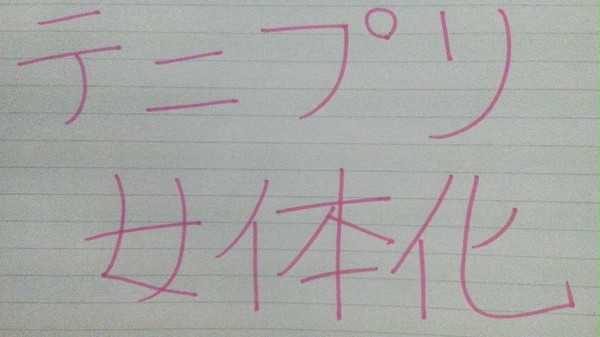 テニプリ
女体化